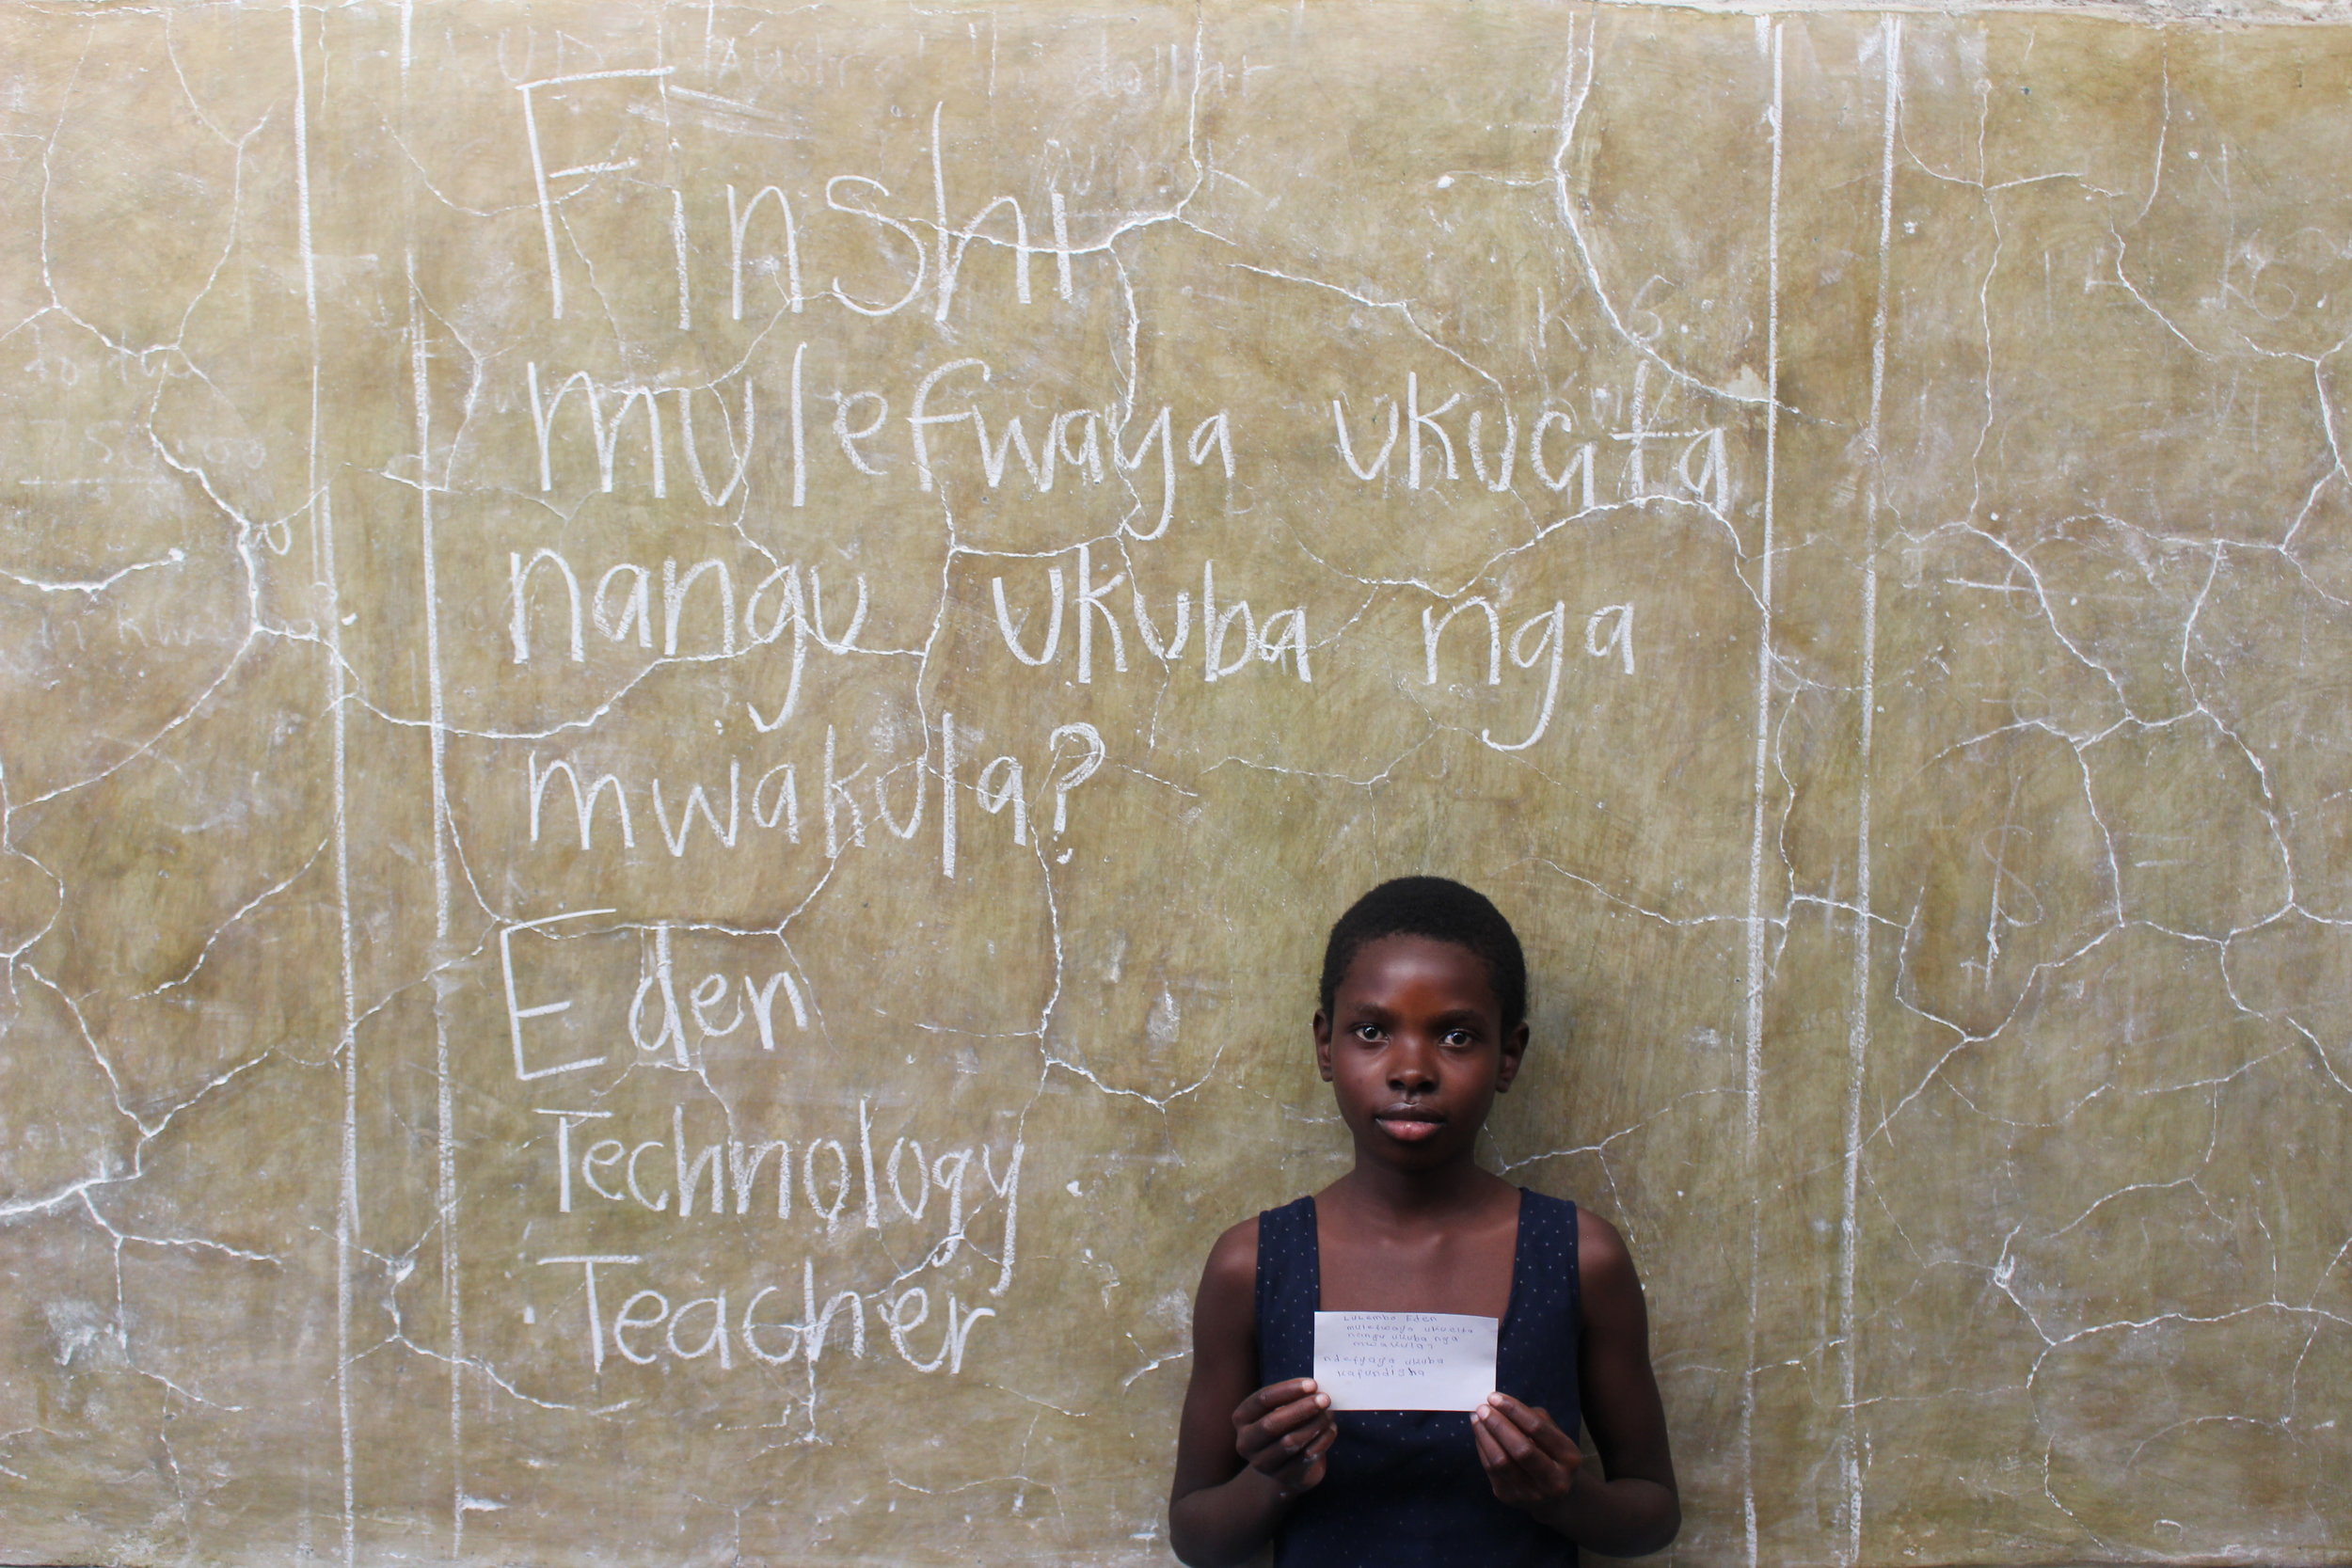 Finshi
mulefwaya ukucita
nangu ukuba nga
mwakula?
Eden
Technology
Teacher
Eden
mulefwaya ukucita
nangu ukuba nga
mwakula?
ndefyaya ukuba
kafundisha